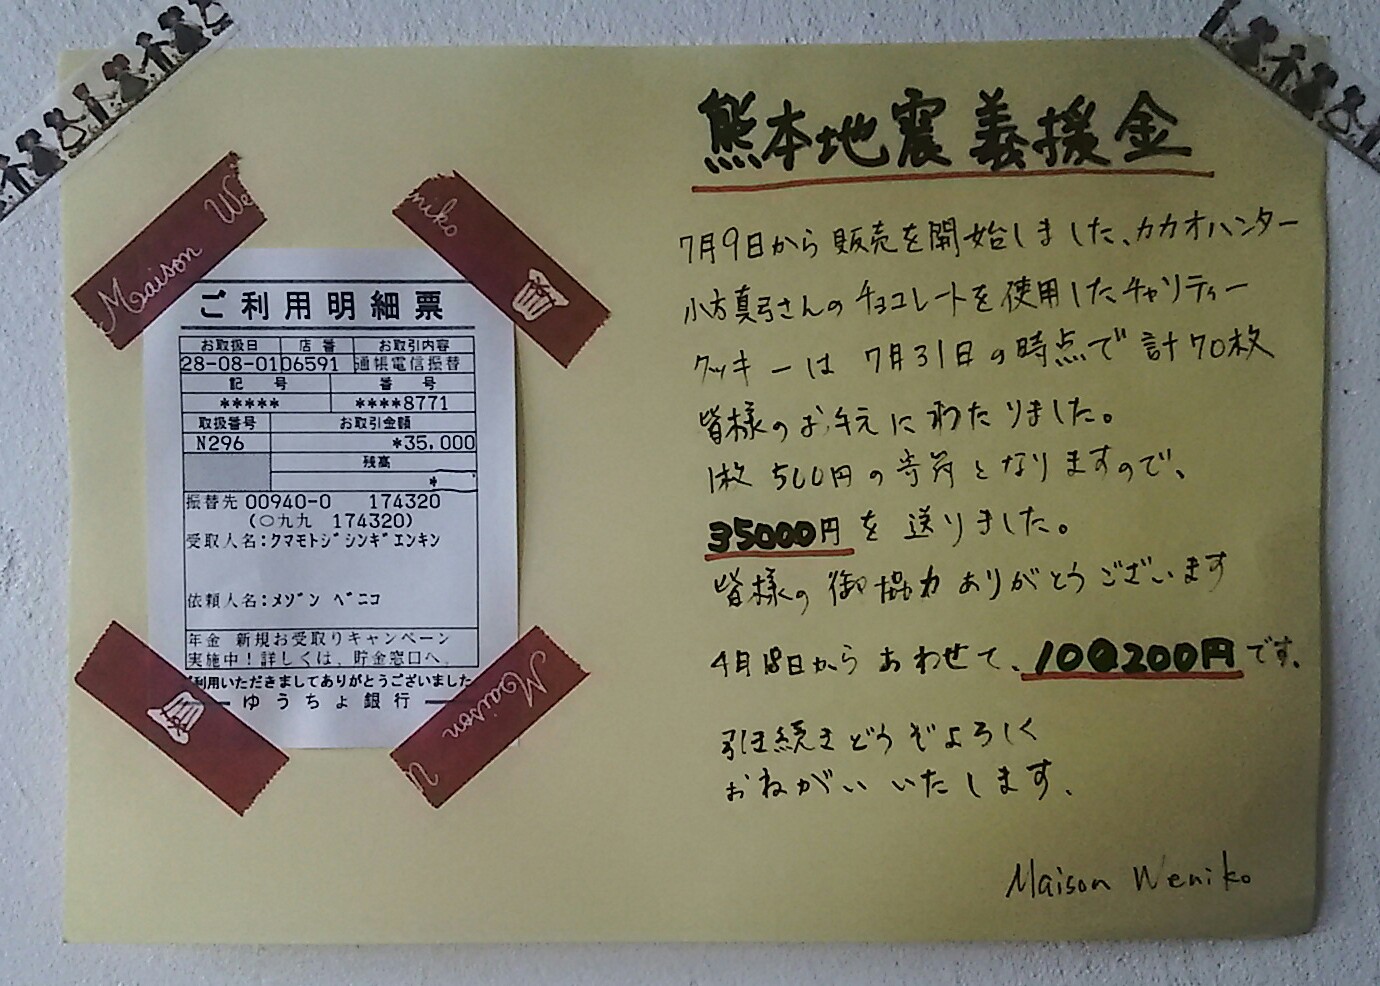 Maison We
niko
ご利用明細票
お取扱日 店番 お取引内容
28-08-01 06591 通帳電信振替
記号 番号
***** ****8771
取扱番号 お取引金額
N296 *35,000
残高
*
振替先 00940-0 174320
(〇九九 174320)
受取人名:クマモトジシンギエンキン
依頼人名:メゾン ベニコ
年金 新規お受取りキャンペーン
実施中!詳しくは、貯金窓口へ
ご利用いただきましてありがとうございました
ゆうちょ銀行
Maison W
熊本地震義援金
7月9日から販売を開始しました、カカオハンター
小方真弓さんのチョコレートを使用したチャリティー
クッキーは7月31日の時点で計70枚
皆様のお手元にわたりました。
1枚500円の寄附となりますので、
35000円を送りました。
皆様の御協力ありがとうございます
4月18日からあわせて、100200円です。
引き続きどうぞよろしく
おねがいいたします.
Maison Weniko